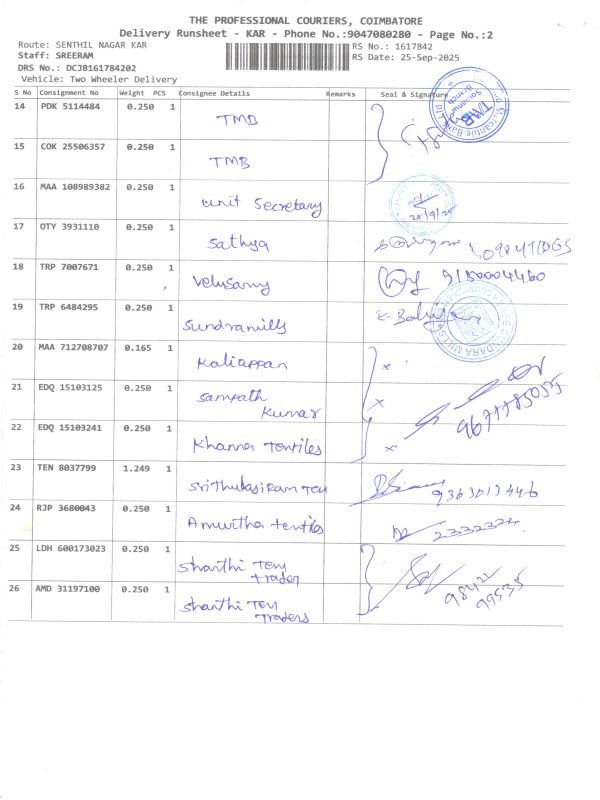 THE PROFESSIONAL COURIERS, COIMBATORE
Delivery Runsheet - KAR - Phone No.:9047080280 - Page No.:2
Route: SENTHIL NAGAR KAR RS No.: 1617842
Staff: SREERAM RS Date: 25-Sep-2025
DRS No.: DCJB161784202
Vehicle: Two Wheeler Delivery
S No Consignment No Weight PCS Consignee Details Remarks Seal & Signature
14 PDK 5114484 0.250 1 TMB
15 COK 25506357 0.250 1 TMB
16 MAA 108989382 0.250 1 unit Secretary
17 OTY 3931110 0.250 1 Sathya
18 TRP 7007671 0.250 1 Velusamy
19 TRP 6484295 0.250 1 Sundramills
20 MAA 712708707 0.165 1 Kaliappan
21 EDQ 15103125 0.250 1 Sampath
Kumar
22 EDQ 15103241 0.250 1 Khanna Textiles
23 TEN 8037799 1.249 1 SriThulasiRam Tex 9363013446
24 RJP 3680043 0.250 1 Amurtha textiles 2332224
25 LDH 600173023 0.250 1 Shanthi Tex
Trader
26 AMD 31197100 0.250 1 Shanthi Tex
Traders
98422
99535